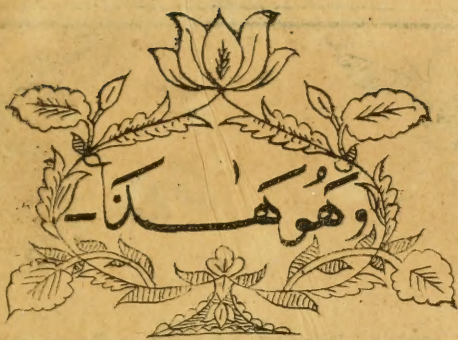 وَهُوَ هٰذَا -